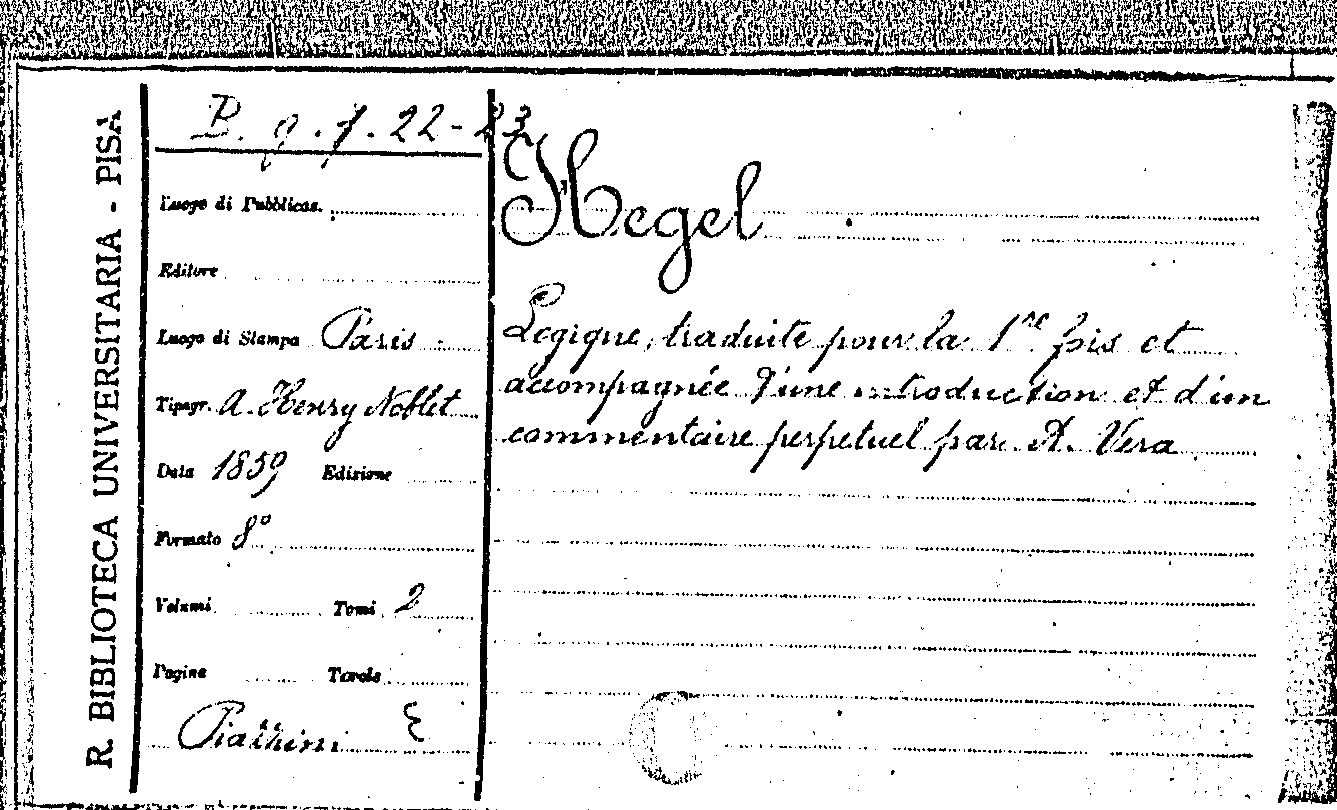 R. BIBLIOTECA UNIVERSITARIA - PISA
B. q. 7. 22-23
Luogo di Pubblicaz.
Editore
Luogo di Stampa Paris
Tipogr. A. Henry Noblet
Data 1859 Edizione
Formato 8º
Volumi Tomi 2
Pagine Tavole
Hegel
Logique, traduite pour la 1re fois et
accompagnée d'une introduction et d'un
commentaire perpetuel par A. Vera